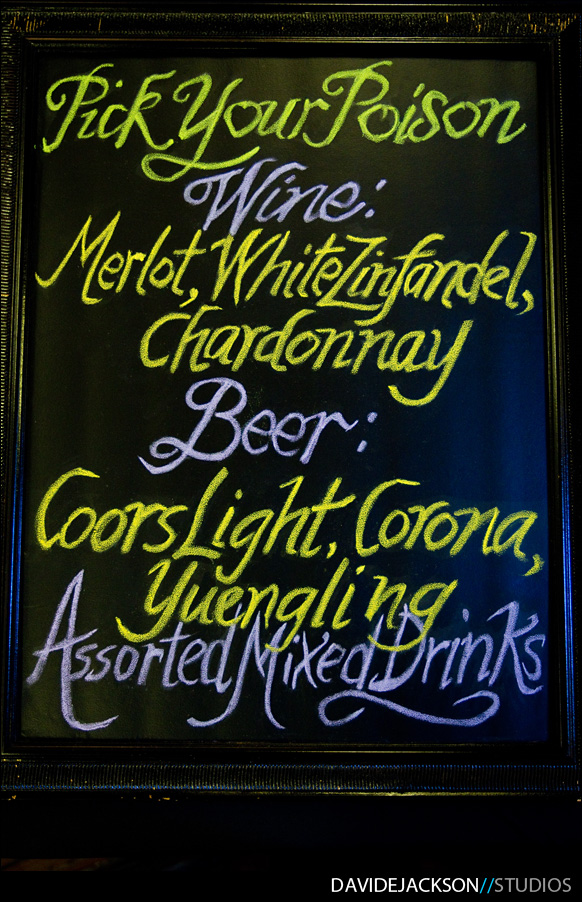 Pick Your Poison
Wine:
Merlot, White Zinfandel,
Chardonnay
Beer:
Coors Light, Corona,
Yuengling
Assorted Mixed Drinks
DAVIDEJACKSON//STUDIOS